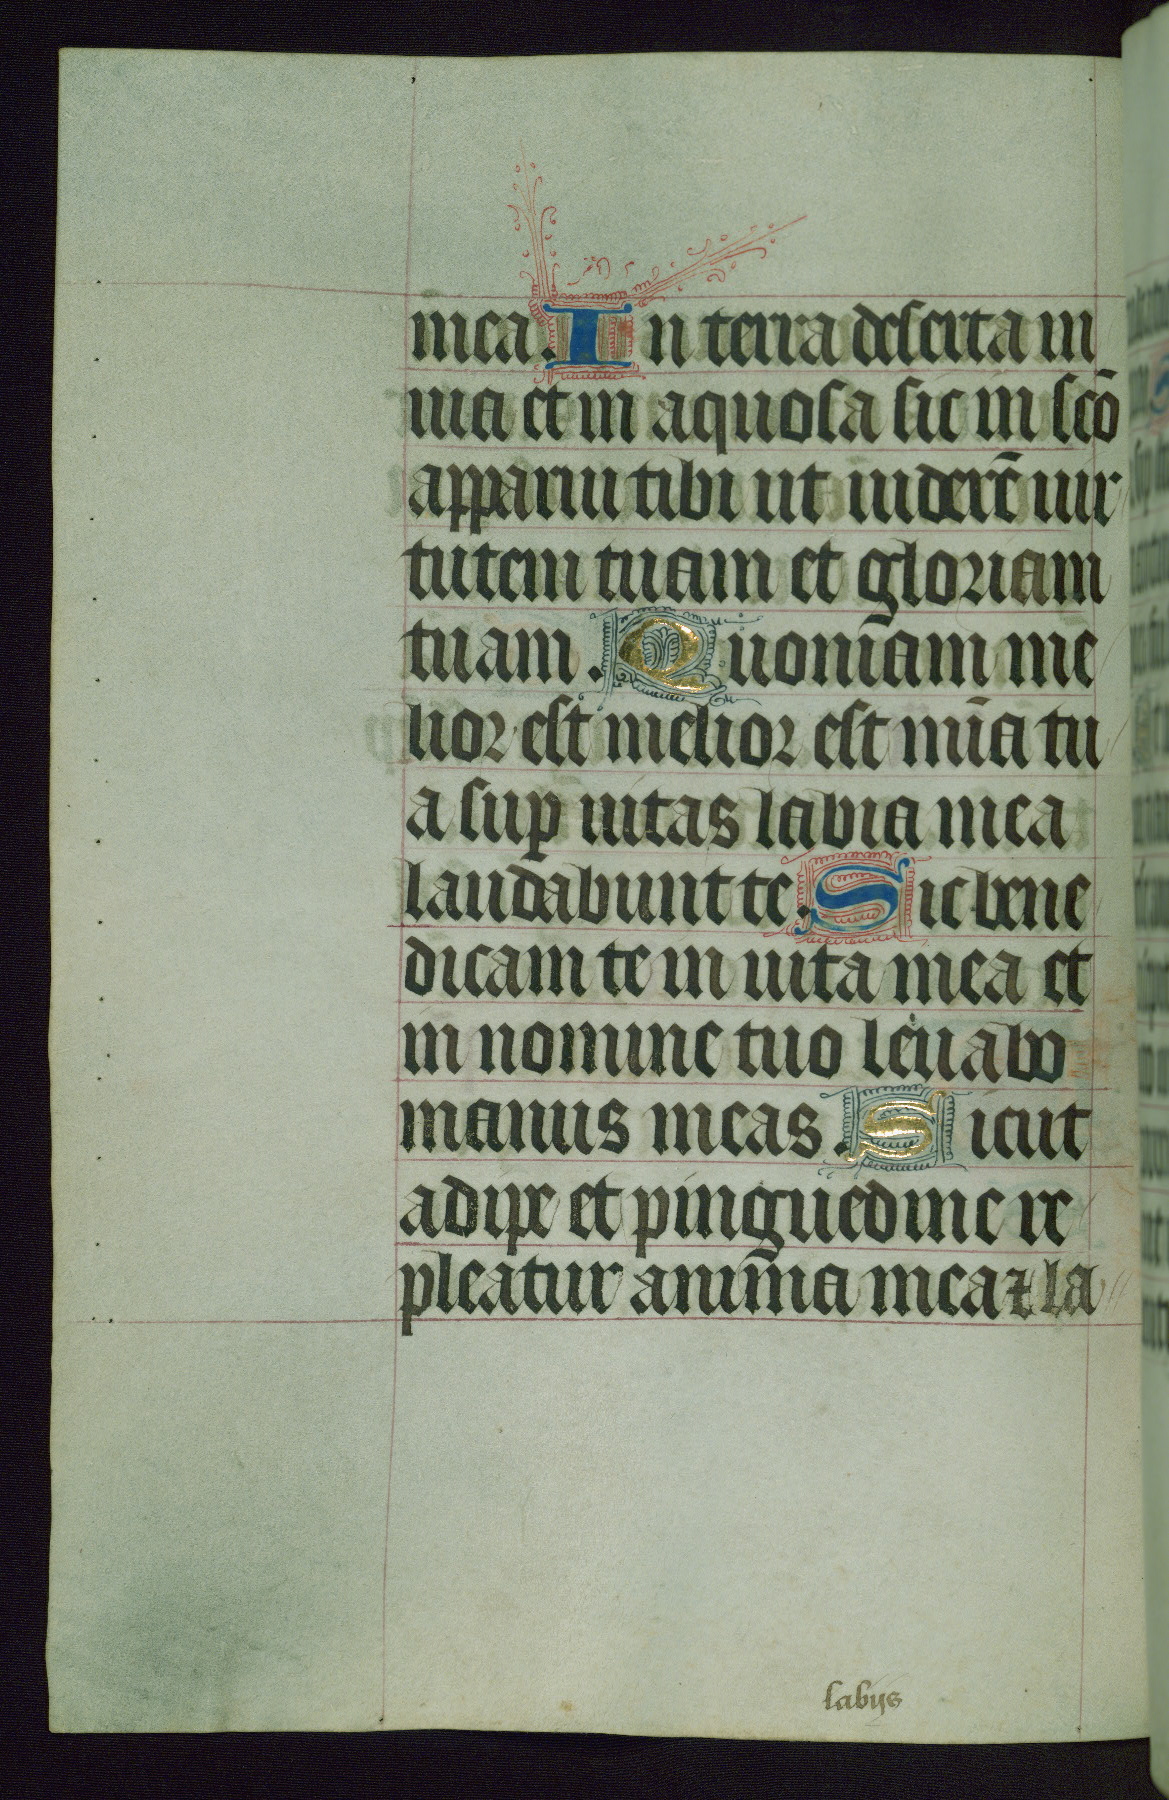 mea. In terra deserta in
uia et in aquosa sic in sc̄o
apparui tibi ut uiderē uir
tutem tuam et gloriam
tuam. Quoniam me
lior est melior est mīa tu
a sup uitas labia mea
laudabunt te. Sic bene
dicam te in uita mea et
in nomine tuo leuabo
manus meas. Sicut
adipe et pinguedine re
pleatur anima mea ⁊ la
labijs